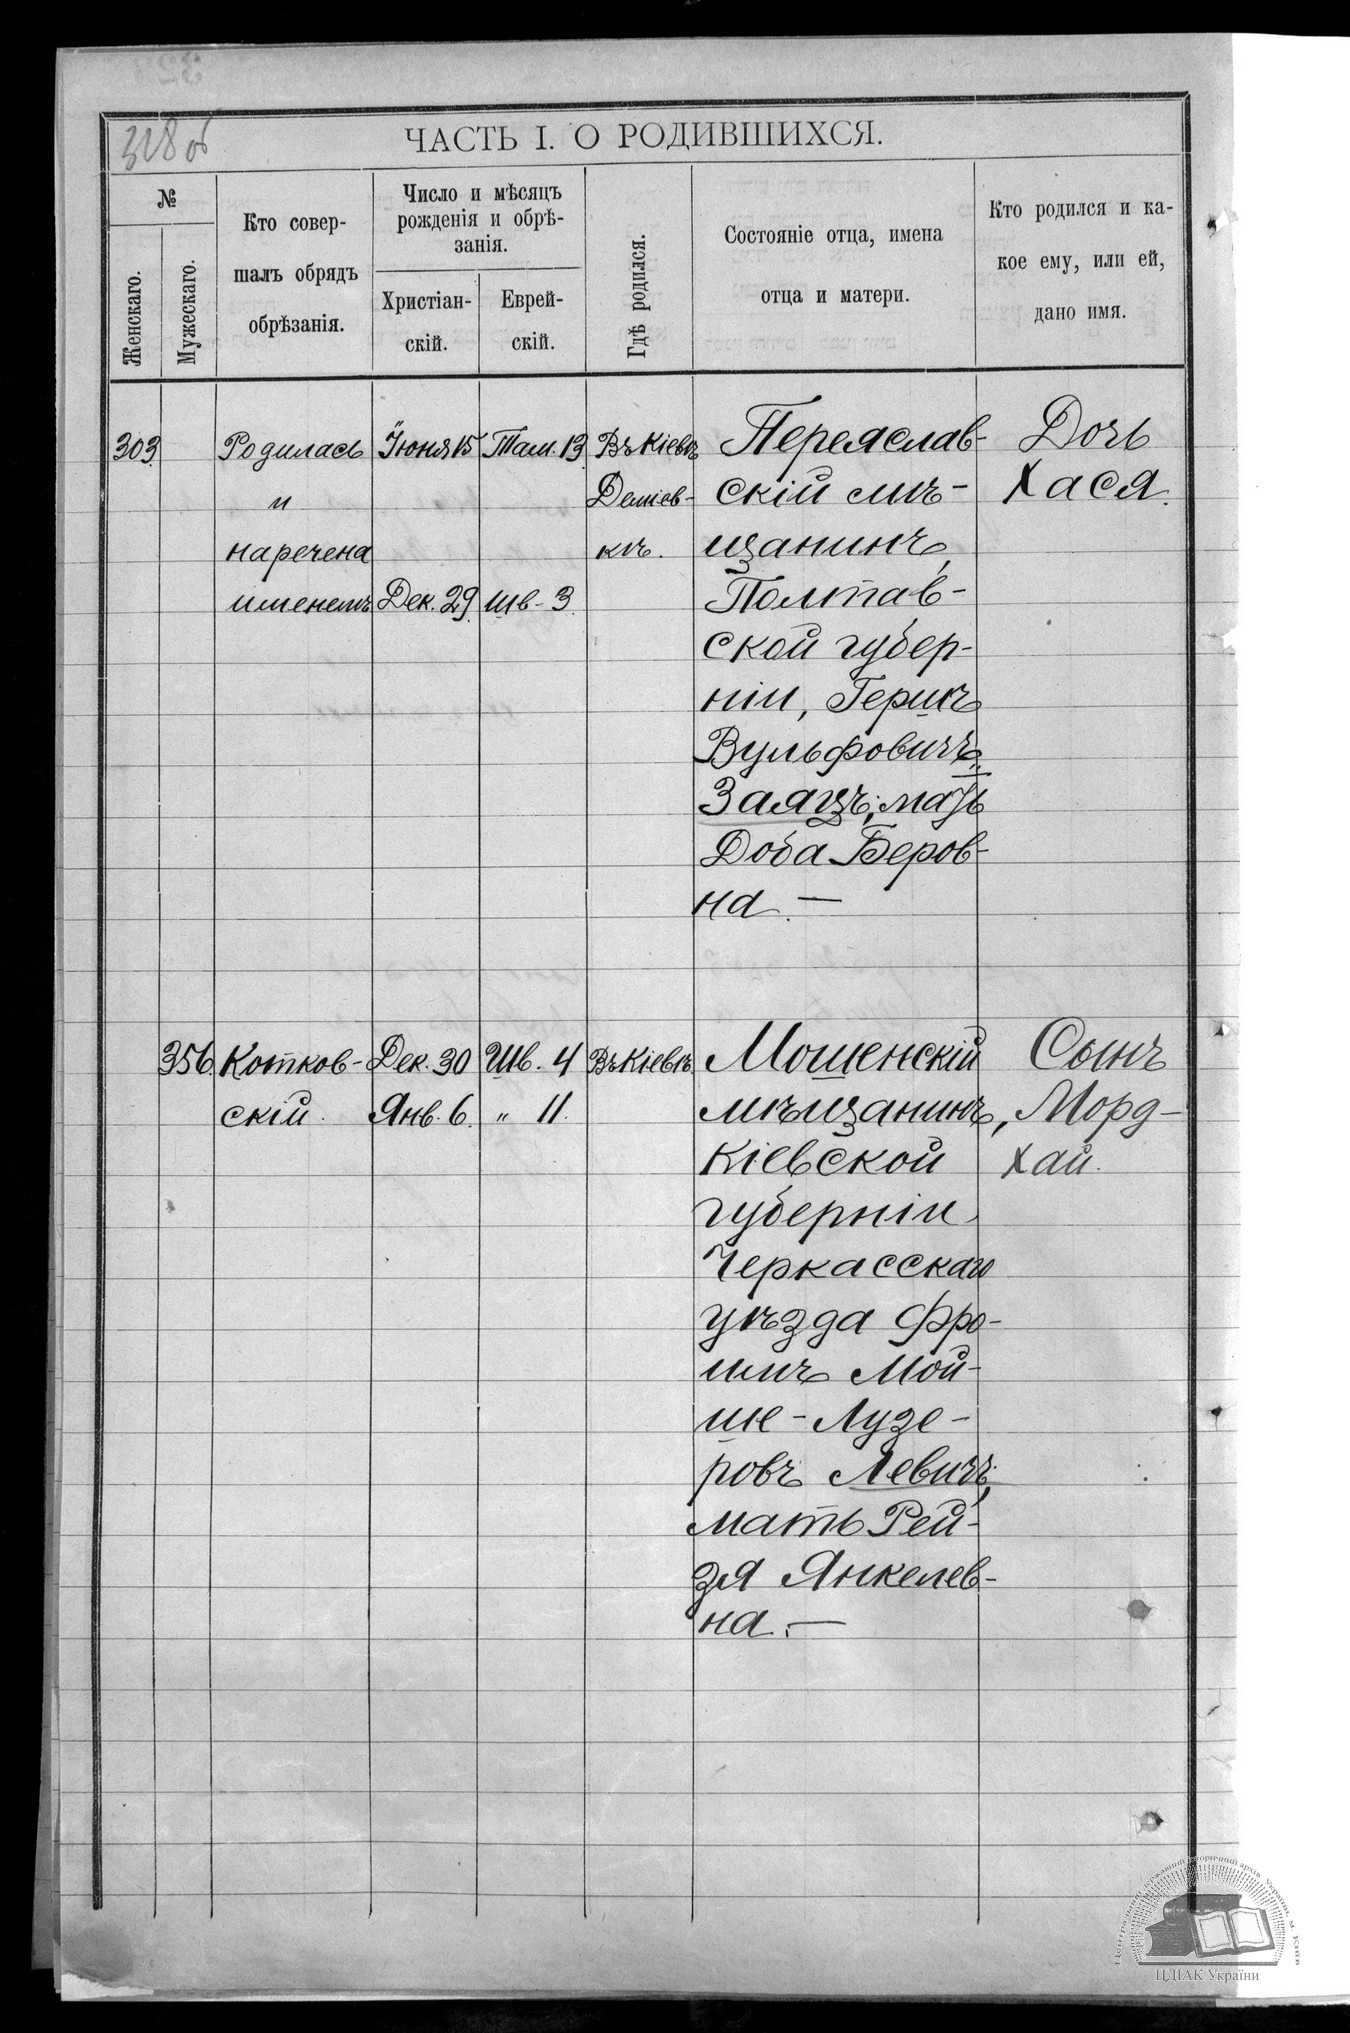 328 об
ЧАСТЬ I. О РОДИВШИХСЯ.
№
Женскаго.
Мужескаго.
Кто совер-
шалъ обрядъ
обрѣзанія.
Число и мѣсяцъ
рожденія и обрѣ-
занія.
Христіан-
скій.
Еврей-
скій.
Гдѣ родился.
Состояніе отца, имена
отца и матери.
Кто родился и ка-
кое ему, или ей,
дано имя.
303
Родилась
и
наречена
именемъ
Іюня 15
Дек. 29.
Там. 13
Шв. 3.
Въ Кіевѣ
Деміев-
кѣ.
Переяслав-
скій мѣ-
щанинъ,
Полтав-
ской губер-
ніи, Гершъ
Вульфовичъ
Заяцъ, мать
Доба Беров-
на. —
Дочь
Хася.
356
Котков-
скій.
Дек. 30
Янв. 6.
Шв. 4
„ 11.
Въ Кіевѣ.
Мошенскій
мѣщанинъ,
Кіевской
губерніи
Черкасскаго
уѣзда Фро-
имъ Мой-
ше-Лузе-
ровъ Левичъ,
мать Рей-
зя Янкелев-
на. —
Сынъ
Морд-
хай.
Центральний державний історичний архів України, м. Київ
ЦДІАК України